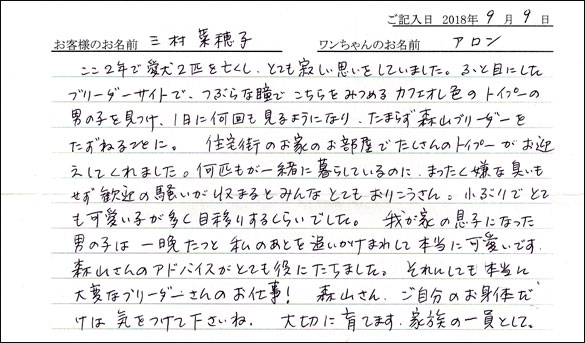 ご記入日 2018年 9月 9日
お客様のお名前 三村 菜穂子 ワンちゃんのお名前 アロン
ここ2年で愛犬2匹を亡くし、とても寂しい思いをしていました。ふと目にした
ブリーダーサイトで、つぶらな瞳でこちらをみつめるカフェオレ色のトイプーの
男の子を見つけ、1日に何回も見るようになり、たまらず森山ブリーダーを
たずねることに。 住宅街のお家のお部屋でたくさんのトイプーがお迎
えしてくれました。何匹もが一緒に暮らしているのに、まったく嫌な臭いも
せず歓迎の騒いが収まるとみんなとてもおりこうさん。小ぶりでとて
も可愛い子が多く目移りするくらいでした。 我が家の息子になった
男の子は一晩たつと私のあとを追いかけまわして本当に可愛いです。
森山さんのアドバイスがとても役にたちました。それにしても本当に
大変なブリーダーさんのお仕事! 森山さん、ご自分のお身体だ
けは気をつけて下さいね。 大切に育てます、家族の一員として。